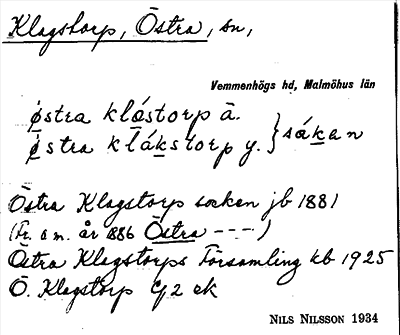 Klagstorp, Östra, sn,
Vemmenhögs hd, Malmöhus län
østra klåstorp ä.
østra klákstorp y. } såkan
Östra Klagstorps socken jb 1881
(Fr. o m. år 1886 Östra ---)
Östra Klagstorps Församling kb 1925
Ö. Klagstorp C/2 ek
NILS NILSSON 1934